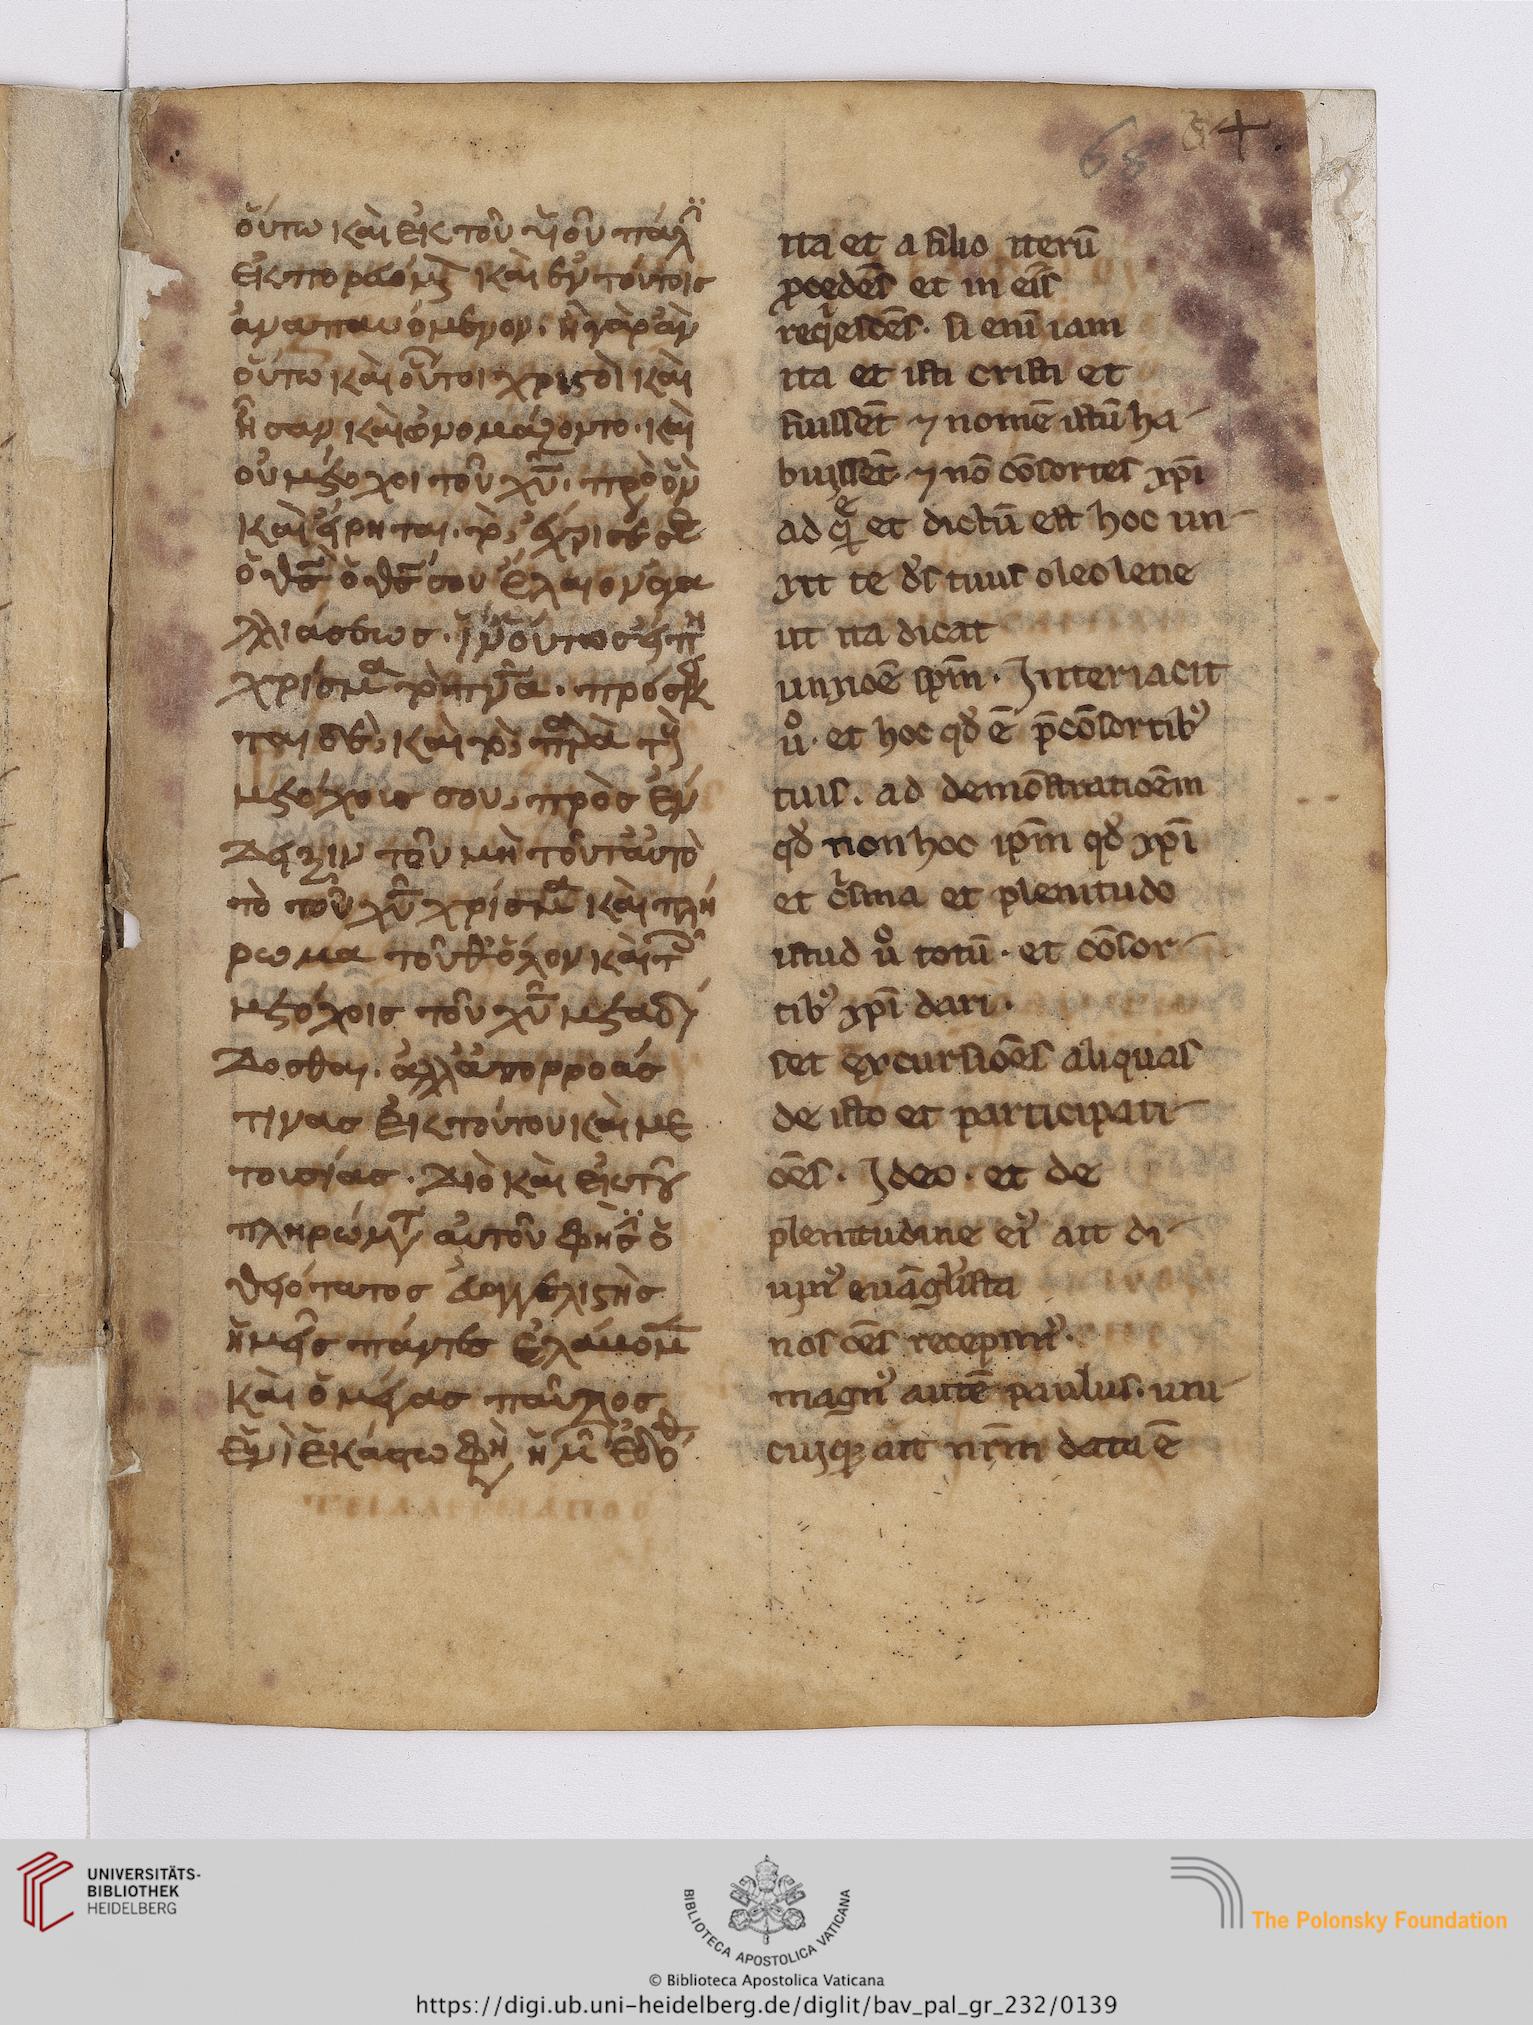 68 64
ὅυτω καὶ ἐκ τοῦ υἱοῦ πάλ
ἐκπορευόμε καὶ ἐν τούτοις
ἀναπαυόμενον. ἢ γὰρ ἂν
ὅυτω καὶ οὗτοι χριστοὶ καὶ
ἦσαν καὶ ὠνομάζοντο. καὶ
οὐ μέτοχοι τοῦ χυ. πρὸ ὃν
καὶ εἴρηται. τὸ, ἔχρισέ σε
ὁ θσ ὁ θσ σου ἔλαιον ἀγα
λλιάσεως. ἵν οὕτως εἴπη
χρίσμα τὸ πνα. πρόσκ
ται δὲ, καὶ τὸ, παρὰ τοὺ
μετόχοις σου, πρὸς ἔν
δειξιν τοῦ μὴ τοῦτ αὐτὸ
τὸ τοῦ χυ χρίσμα καὶ πλή
ρωμα τοῦθ ὅλον καὶ τοῖ
μετόχοις τοῦ χυ μεταδί
δοσθαι. ἀλλ ἀπορροάς
τινας ἐκ τούτου καὶ με
τουσίας. Διὸ καὶ ἐκ τοῦ
πληρώματ αὐτοῦ φησὶ ὁ
θειότατος εὐαγγελιστὴς
ἡμεῖς πάντες ἐλάβομ
καὶ ὁ μέγας παῦλος
ἑνὶ ἑκάστω φη ἡμ ἐδό
ita et a filio iterū
ꝓcedēs et in eis
reqiescēs. si enī iam
ita et isti cristi et
fuissēt ⁊ nomē istū ha-
buissēt ⁊ nō cōsortes xpi
ad quē et dictū est hoc un-
xit te ds tuus oleo letie
ut ita dicat
unxioē ipm. Interiacit
uo. et hoc qd ē p cōsortibꝰ
tuis. ad demōstratioēm
qd non hoc ipm qd xpi
et crisma et plenitudo
istud uo totū. et cōsor-
tibꝰ xpi dari.
set excursiōes aliquas
de isto et participati-
oēs. Ideo. et de
plenitudine eiꝰ ait di-
uinꝰ euāglista
nos oēs recepimꝰ.
magnꝰ autē paulus. uni-
cuiqꝫ ait nrm data ē
UNIVERSITÄTS-
BIBLIOTHEK
HEIDELBERG
BIBLIOTECA APOSTOLICA VATICANA
The Polonsky Foundation
© Biblioteca Apostolica Vaticana
https://digi.ub.uni-heidelberg.de/diglit/bav_pal_gr_232/0139